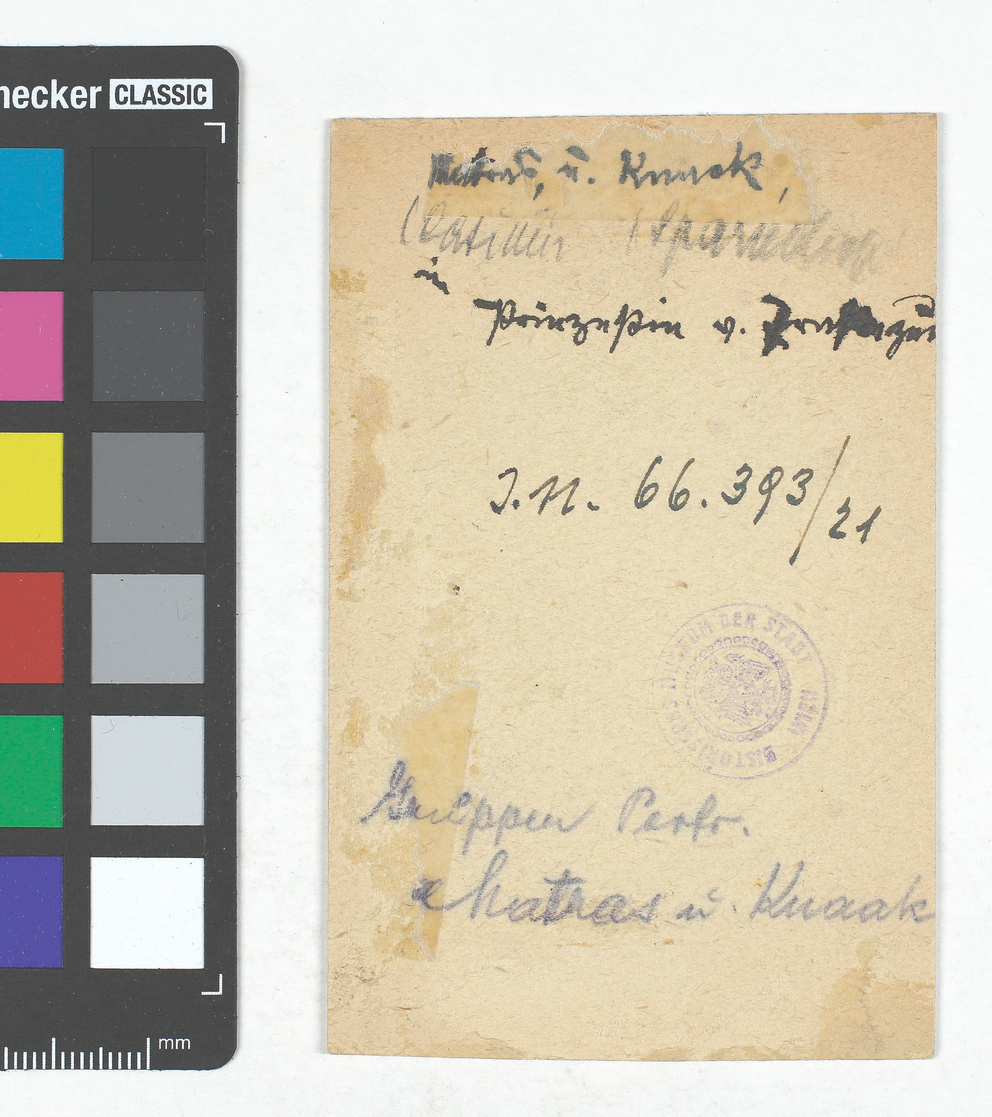 hecker CLASSIC
Matras, u. Knaak,
in
Prinzeßin v.
I.N. 66.393/21
HISTORISCHES MUSEUM DER STADT WIEN
Gruppen Portr.
Matras u. Knaak
mm